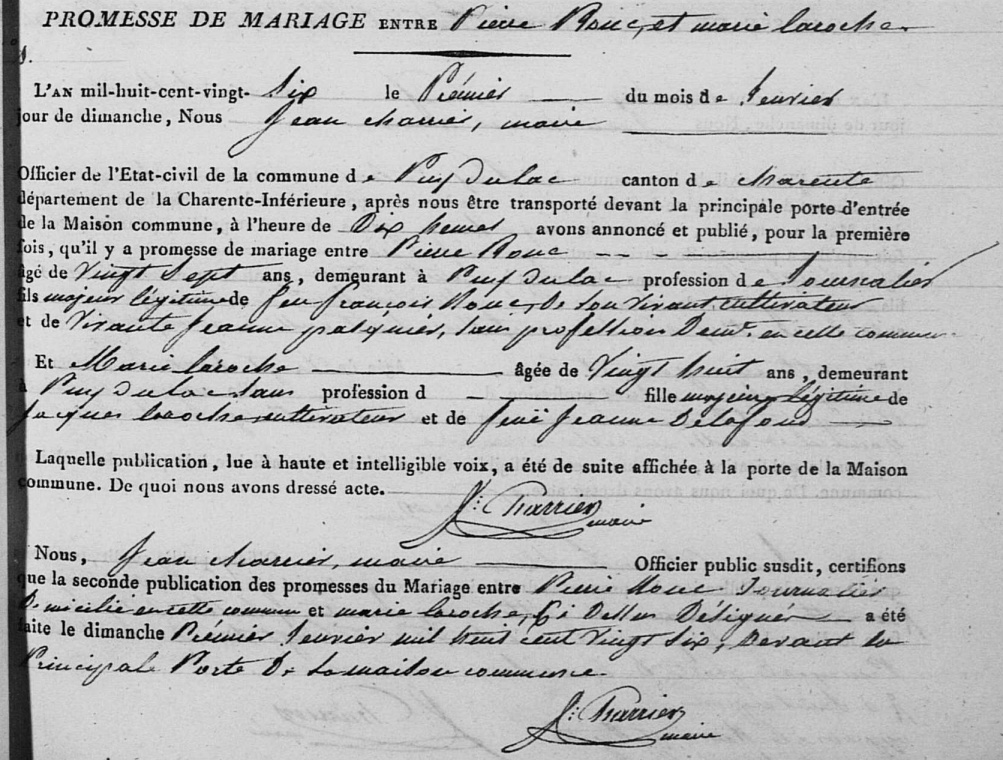 PROMESSE DE MARIAGE ENTRE Pierre Rouc, et marie laroche
L'AN mil-huit-cent-vingt-six le Prémier du mois de Jenvier
jour de dimanche, Nous Jean charrier, maire
Officier de l'Etat-civil de la commune de Puy du lac canton de charente
département de la Charente-Inférieure, après nous être transporté devant la principale porte d'entrée
de la Maison commune, à l'heure de Dix heures avons annoncé et publié, pour la première
fois, qu'il y a promesse de mariage entre Pierre Rouc
âgé de Vingt Sept ans, demeurant à Puy du lac profession de Journalier
fils majeur légitime de feu françois Rouc, De son vivant cultivateur
et de Vivante Jeanne, sans profession Demt. en cette commune
Et Marie laroche âgée de Vingt huit ans, demeurant
à Puy du lac sans profession d fille majeure légitime de
Jacques laroche cultivateur et de feüe Jeanne Delafond
Laquelle publication, lue à haute et intelligible voix, a été de suite affichée à la porte de la Maison
commune. De quoi nous avons dressé acte.
J: Charrier
maire
Nous, Jean charrier, maire Officier public susdit, certifions
que la seconde publication des promesses du Mariage entre Pierre Rouc Journalier
Domicilié en cette commune et marie laroche, Ci Dessus Désignés a été
faite le dimanche Prémier Jenvier mil huit cent vingt six, Devant la
Principale Porte De la maison commune.
J: Charrier
maire